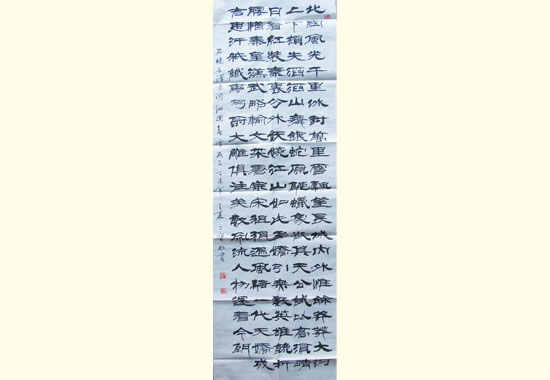 北國風光千里冰封萬里雪飄望長城内外惟餘莽莽大河
上下頓失滔滔山舞銀蛇原馳蠟象欲與天公試比高須晴
日看紅裝素裹分外妖嬈江山如此多嬌引無數英雄競折
腰惜秦皇漢武略輸文采唐宗宋祖稍遜風騷一代天驕成
吉思汗祇識彎弓射大雕俱往矣數風流人物還看今朝
毛澤東詞沁園春